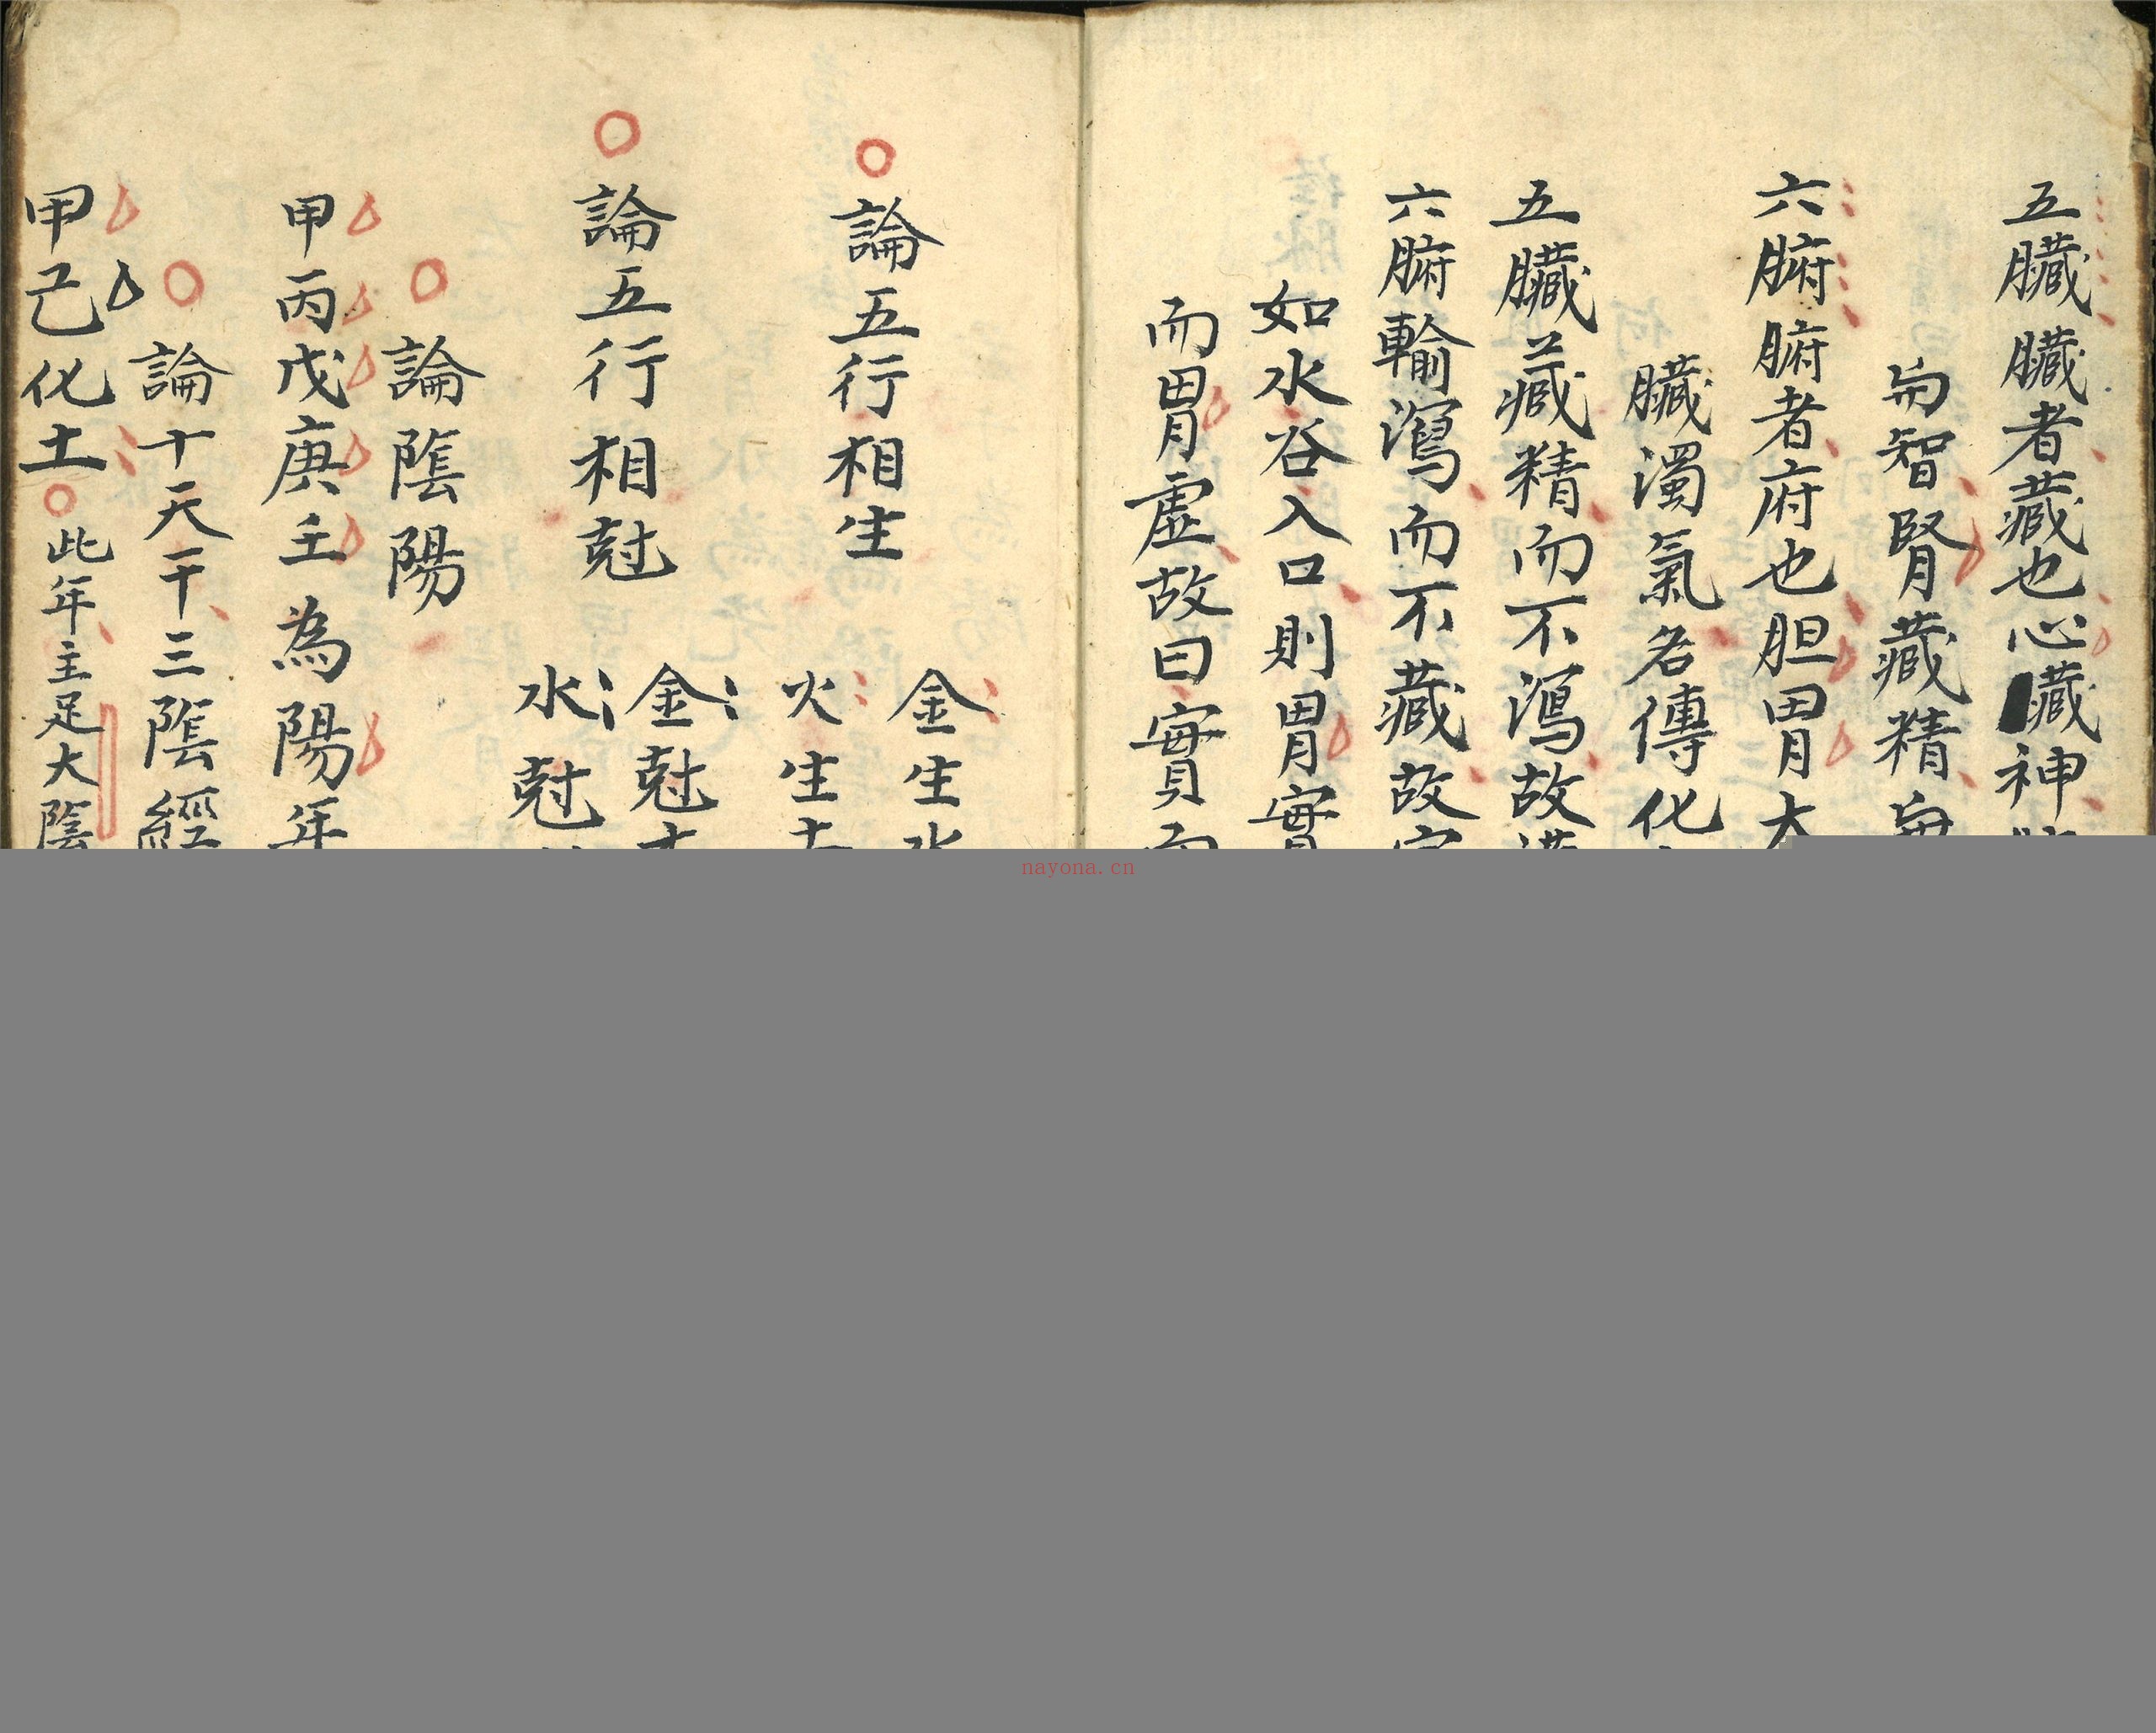 五臟臟者藏也心臟神
與智腎藏精
六腑腑者府也胆胃大
臟濁氣名傳化
五臟藏精而不瀉故
六腑輸瀉而不藏故
如水谷入口則胃實
而胃虛故曰實而
論五行相生
金生水
火生土
論五行相尅
金尅
水尅
論陰陽
甲丙戊庚壬為陽年
論十天干三陰經
甲己化土此年主足大陰
nayona.cn